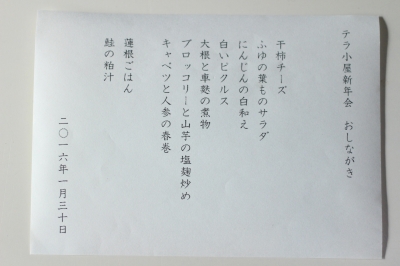 テラ小屋新年会　おしながき
干柿チーズ
ふゆの葉ものサラダ
にんじんの白和え
白いピクルス
大根と車麩の煮物
ブロッコリーと山芋の塩麹炒め
キャベツと人参の春巻
蓮根ごはん
鮭の粕汁
二〇一六年一月三十日